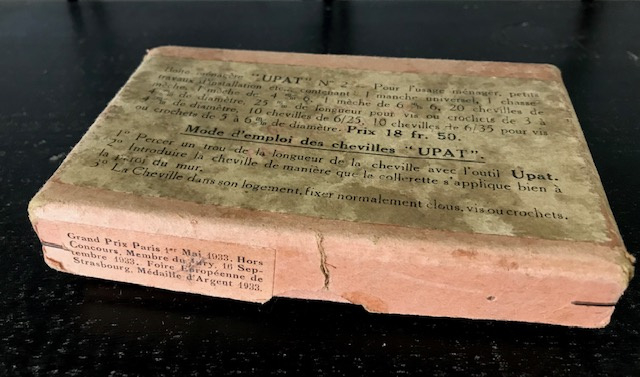 Boîte ménagère "UPAT" N° 2. Pour l'usage ménager, petits
travaux d'installation etc. contenant : 1 manche universel, 1 chasse-
mèche, 1 mèche de 6, 1 mèche de 6, 20 chevilles de
4 % de diamètre, 25 % de longueur pour vis ou crochets de 3 à
4 % de diamètre, 10 chevilles de 6/25, 10 chevilles de 6/35 pour vis
ou crochets de 5 à 6 % de diamètre. Prix 18 fr. 50.
Mode d'emploi des chevilles "UPAT".
1° Percer un trou de la longueur de la cheville avec l'outil Upat.
2° Introduire la cheville de manière que la collerette s'applique bien à
la paroi du mur.
3° La Cheville dans son logement, fixer normalement clous, vis ou crochets.
Grand Prix Paris 1er Mai 1933. Hors
Concours, Membre du Jury, 16 Sep-
tembre 1933. Foire Européenne de
Strasbourg, Médaille d'Argent 1933.